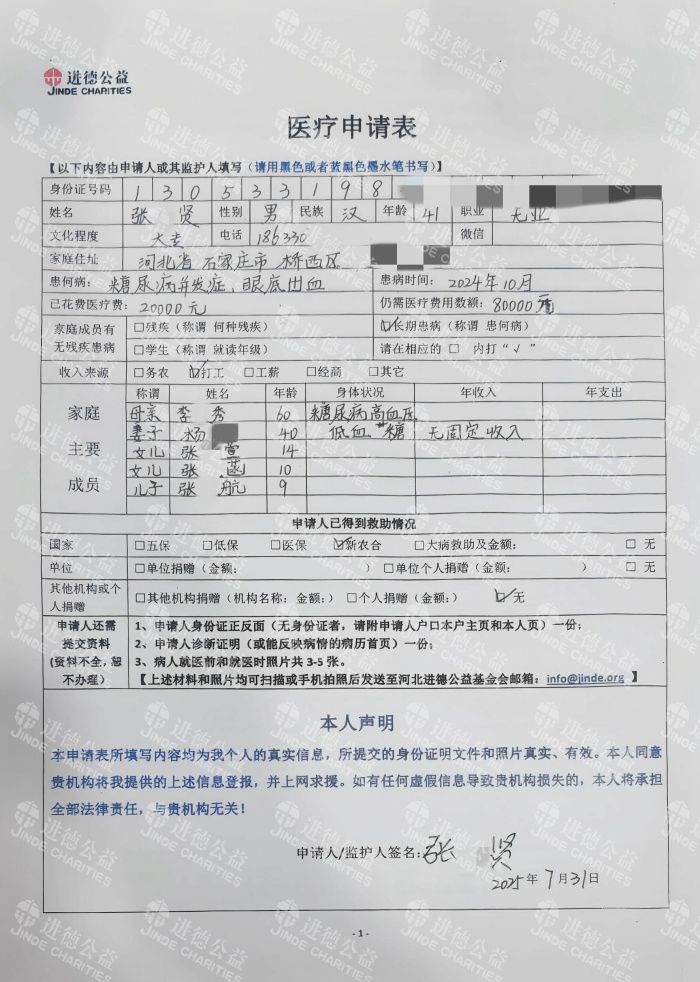 进德公益
JINDE CHARITIES
医疗申请表
【以下内容由申请人或其监护人填写（请用黑色或者蓝黑色墨水笔书写）】
身份证号码 1 3 0 5 3 3 1 9 8
姓名 张 贤 性别 男 民族 汉 年龄 41 职业 无业
文化程度 大专 电话 186330 微信
家庭住址 河北省石家庄市桥西区
患何病： 糖尿病并发症、眼底出血 患病时间： 2024年10月
已花费医疗费： 20000元 仍需医疗费用数额： 80000
家庭成员有无残疾患病 □残疾（称谓 何种残疾） ☑长期患病（称谓 患何病）
□学生（称谓 就读年级） 请在相应的 □ 内打“√”
收入来源 □务农 ☑打工 □工薪 □经商 □其它
家庭主要成员 称谓 姓名 年龄 身体状况 年收入 年支出
母亲 李 秀 60 糖尿病高血压
妻子 杨 40 低血糖 无固定收入
女儿 张 萱 14
女儿 张 菡 10
儿子 张 航 9
申请人已得到救助情况
国家 □五保 □低保 □医保 ☑新农合 □大病救助及金额： □ 无
单位 □单位捐赠（金额： ） □单位个人捐赠（金额： ） □ 无
其他机构或个人捐赠 □其他机构捐赠（机构名称：金额：） □个人捐赠（金额：） ☑无
申请人还需提交资料（资料不全，恕不办理） 1、申请人身份证正反面（无身份证者，请附申请人户口本户主页和本人页）一份；
2、申请人诊断证明（或能反映病情的病历首页）一份；
3、病人就医前和就医时照片共 3-5 张。
【上述材料和照片均可扫描或手机拍照后发送至河北进德公益基金会邮箱：info@jinde.org 】
本人声明
本申请表所填写内容均为我个人的真实信息，所提交的身份证明文件和照片真实、有效。本人同意
贵机构将我提供的上述信息登报，并上网求援。如有任何虚假信息导致贵机构损失的，本人将承担
全部法律责任，与贵机构无关！
申请人/监护人签名： 张 贤
2025年 7月31日
- 1 -